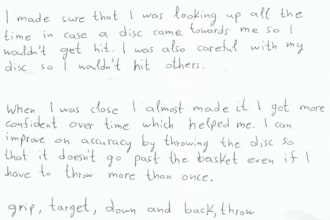 I made sure that I was looking up all the
time in case a disc came towards me so I
wouldn't get hit. I was also careful with my
disc so I wouldn't hit others.
When I was close I almost made it. I got more
confident over time which helped me. I can
improve on accuracy by throwing the disc so
that it doesn't go past the basket even if I
have to throw more than once.
grip, target, down and back, throw